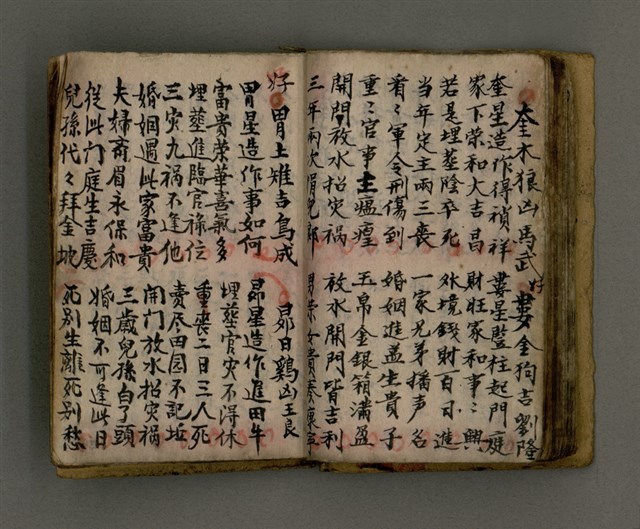 奎木狼凶馬武
奎星造作得禎祥
家下荣和大吉昌
若是埋塟陰卒死
当年定主兩三丧
看〻軍令刑傷到
重〻官事主瘟㾮
開門放水招灾禍
三年兩次
好 婁金狗吉劉隆
婁星監柱起門庭
財旺家和事〻興
外境錢財百日進
一家兄弟播声名
婚姻進益生貴子
玉帛金銀箱滿盈
放水開門皆吉利
好 胃土雉吉烏成
胃星造作事如何
富貴荣華喜氣多
埋塟進臨官祿位
三灾九祸不逢他
婚姻遇此家富貴
夫婦齐眉永保和
從此门庭生吉慶
兒孫代々拜金坡
昴日鷄凶王良
昴星造作進田牛
埋塟官灾不得休
重丧二日三人死
责尽田园不記坵
開门放水招灾祸
三歲兒後白了頭
婚姻不可逢此日
死别生離死别愁